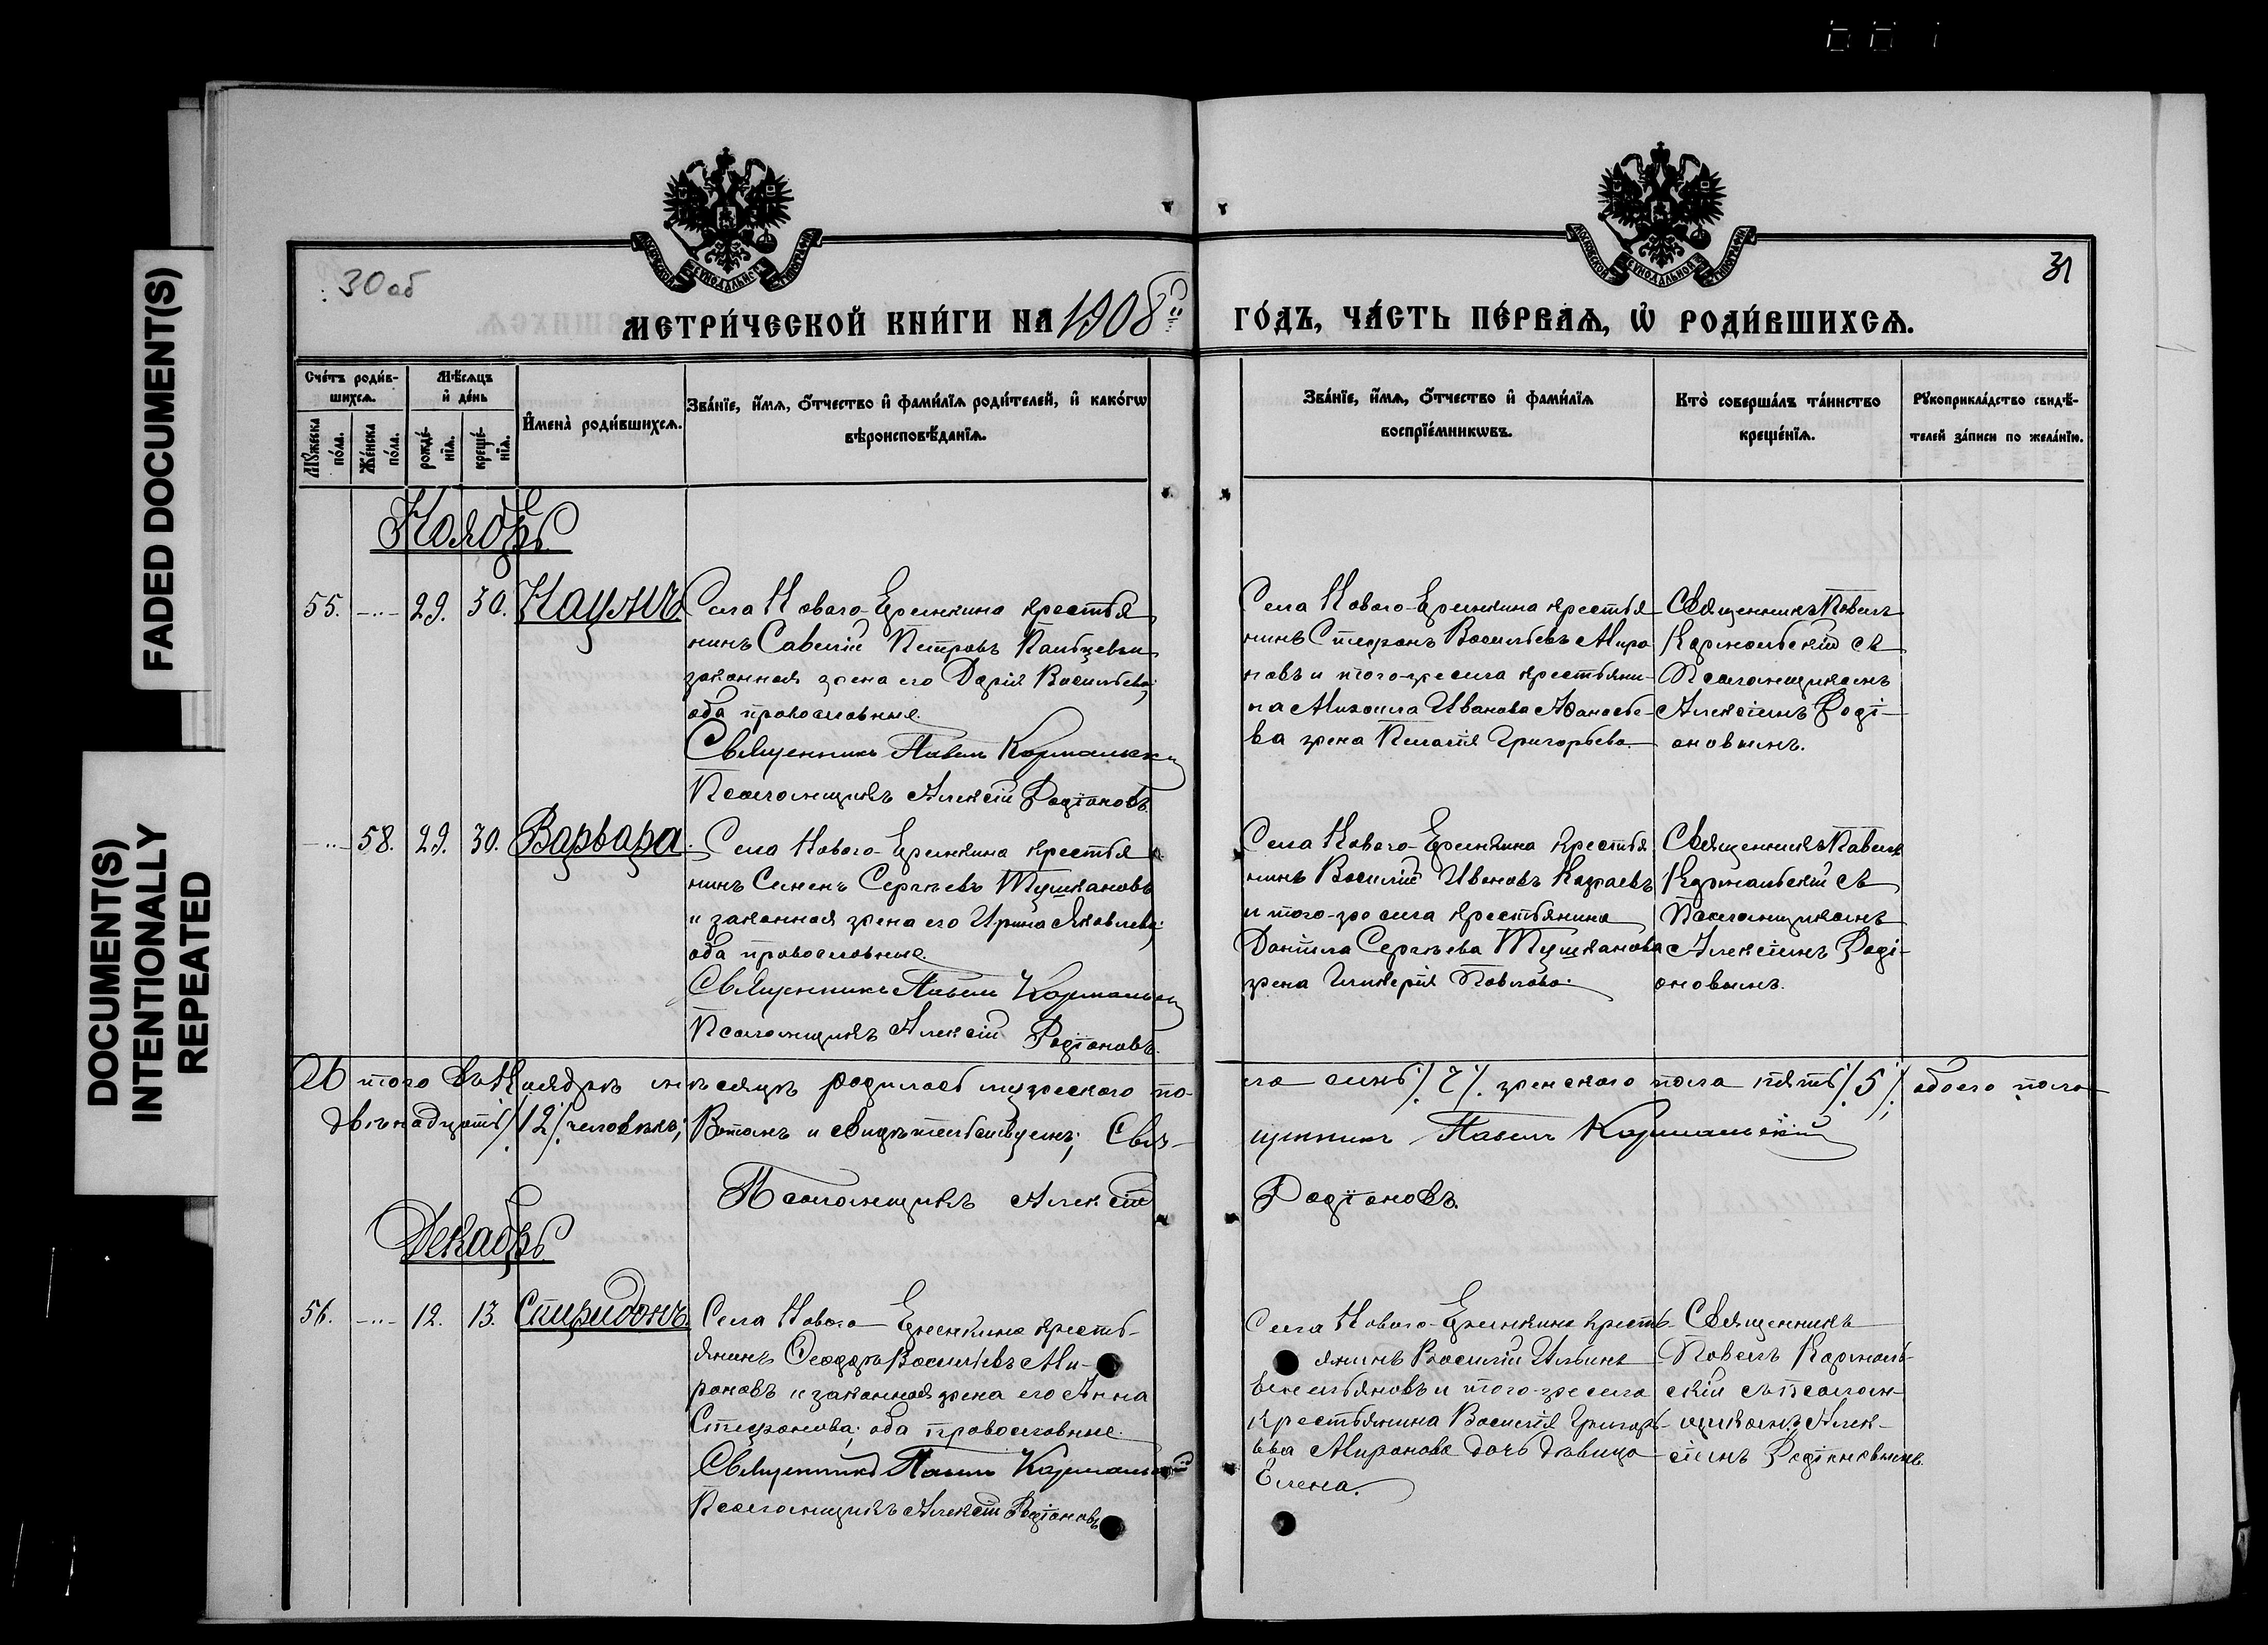 FADED DOCUMENT(S)
DOCUMENT(S)
INTENTIONALLY
REPEATED
30 об
31
МЕТРИ́ЧЕСКОЙ КНИ́ГИ НА 1908й
ГО́ДЪ, ЧА́СТЬ ПЕ́РВАѦ, Ѡ҆ РОДИ́ВШИХСѦ.
Сче́тъ роди́в-
шихсѧ.
Мꙋ́жеска по́ла.
Же́нска по́ла.
Мѣ́сѧцъ
и҆ де́нь
рожде́-нїѧ.
креще́-нїѧ.
И҆мена̀ роди́вшихсѧ.
Зва́нїе, и҆́мѧ, ѻ҆́тчество и҆ фами́лїѧ роди́телей, и҆ како́гѡ
вѣроисповѣ́данїѧ.
Зва́нїе, и҆́мѧ, ѻ҆́тчество и҆ фами́лїѧ
воспрїе́мникѡвъ.
Кто̀ соверша́лъ та́инство
креще́нїѧ.
Рꙋкоприкла́дство свидѣ́-
телей за́писи по жела́нїю.
Ноябрь
55. -..- 29. 30. Наумъ.
Села Нового-Еремкина крестья
нинъ Савелій Петровъ и
законная жена его Дарія Васильева;
оба православные.
Священникъ Павелъ Кармальскій
Псаломщикъ Алексій Родіоновъ.
Села Нового-Еремкина крестья
нинъ Стефанъ Васильевъ Миро
новъ и того-же села крестьяни-
на Михаила Иванова Афанасье-
ва жена Пелагія Григорьева.
Священникъ Павелъ
Кармальскій съ
Псаломщикомъ
Алексіемъ Родi-
оновымъ.
-..- 58. 29. 30. Варвара.
Села Нового-Еремкина крестья
нинъ Семенъ Сергѣевъ Тушкановъ
и законная жена его Ирина Яковлева;
оба православные.
Священникъ Павелъ Кармальскій
Псаломщикъ Алексій Родіоновъ.
Села Нового-Еремкина крестья
нинъ Василій Ивановъ
и того-же села крестьянина
Даніила Сергѣева Тушканова
жена Гликерія Павлова.
Священникъ Павелъ
Кармальскій съ
Псаломщикомъ
Алексіемъ Родi-
оновымъ.
А того въ Ноябрѣ мѣсяцѣ родилось мужеского по-
ла семь /7/. женского пола пять /5/; обоего пола
двѣнадцать /12/ человѣкъ; Въ томъ и свидѣтельствуемъ; Свя-
щенникъ Павелъ Кармальскій
Псаломщикъ Алексій
Родіоновъ.
Декабрь
56. -..- 12. 13. Спиридонъ.
Села Нового-Еремкина кресть-
янинъ Феодоръ Васильевъ Ми-
роновъ и законная жена его Анна
Стефанова; оба православные.
Священникъ Павелъ Кармальскій
Псаломщикъ Алексій Родіоновъ
Села Нового-Еремкина кресть-
янинъ Василій Ильинъ
Емельяновъ и того-же села
крестьянина Василія Григорь-
ева Миронова дочь дѣвица
Елена.
Священникъ
Павелъ Кармаль-
скій съ псалом-
щикомъ Алек-
сіемъ Родіоновымъ.